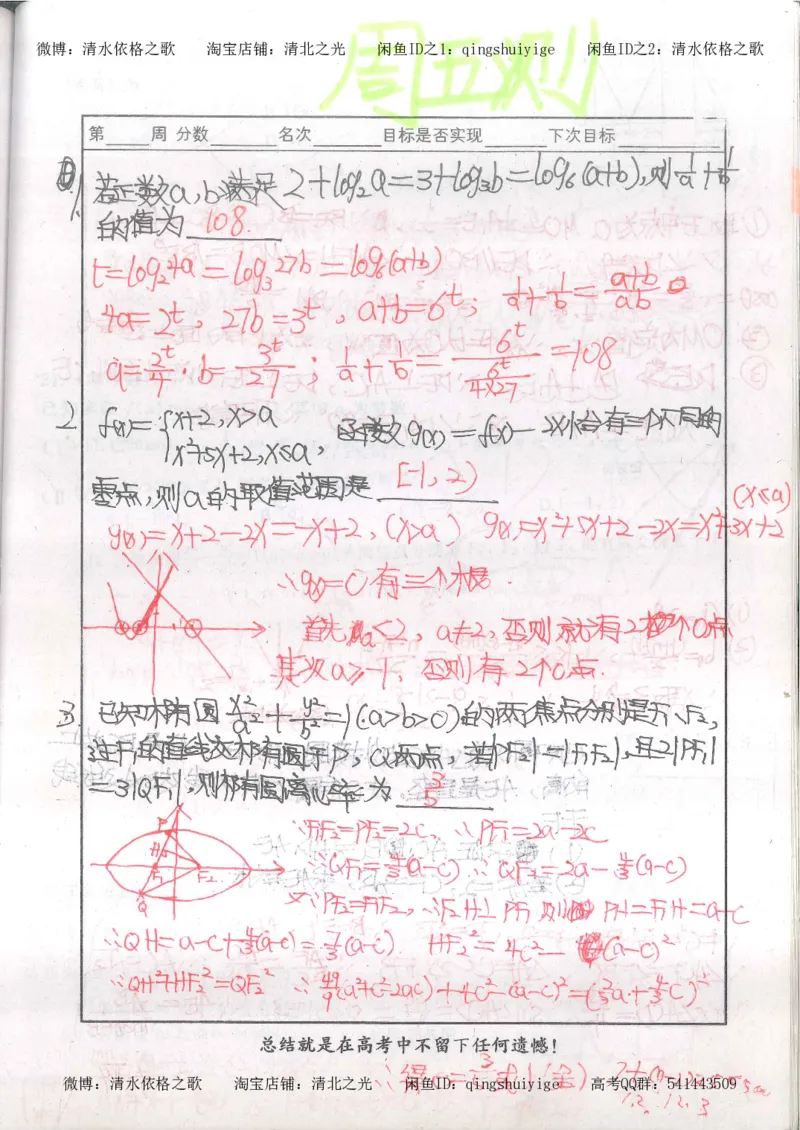 微博：清水依格之歌 淘宝店铺：清北之光 闲鱼ID之1：qingshuiyige 闲鱼ID之2：清水依格之歌
周五测
第____周 分数______名次______目标是否实现______下次目标________
1、若正数a,b满足 2+log₂a=3+log₃b=log₆(a+b),则1/a+1/b
的值为 108.
t=log₂4a=log₃27b=log₆(a+b)
4a=2^t, 27b=3^t, a+b=6^t; 1/a+1/b=(a+b)/(ab)
a=2^t/4, b=3^t/27; 1/a+1/b=6^t/(6^t/(4×27))=108
2. f(x)={x+2,x>a
x²+5x+2,x≤a, 函数g(x)=f(x)-2x恰有三个不同的
零点,则a的取值范围是 [-1,2)
(x≤a)
g(x)=x+2-2x=-x+2,(x>a) g(x)=x²+5x+2-2x=x²+3x+2
∵g(x)=0有三个根.
首先a<2, a≠2,否则就有2个0点
其次a≥-1, 否则有2个0点.
3. 已知椭圆 x²/a²+y²/b²=1(a>b>0)的两焦点分别是F₁、F₂,
过F₁的直线交椭圆于P,Q两点,若|PF₂|=|F₁F₂|,且2|PF₁|
=3|QF₁|,则椭圆离心率为 3/5
P
H
F₁ F₂
Q
∵F₁F₂=PF₂=2c, ∴PF₁=2a-2c
∴QF₁=4/3(a-c) ∴QF₂=2a-4/3(a-c)
又∵PF₂=F₁F₂, ∴F₂H⊥PF₁ 则 PH=F₁H=a-c
∴QH=a-c+4/3(a-c)=7/3(a-c) HF₂²=4c²-(a-c)²
∵QH²+HF₂²=QF₂² ∴49/9(a²+c²-2ac)+4c²-(a-c)²=(2/3a+4/3c)²
总结就是在高考中不留下任何遗憾！
微博：清水依格之歌 淘宝店铺：清北之光 闲鱼ID之1：qingshuiyige 高考QQ群：541443509